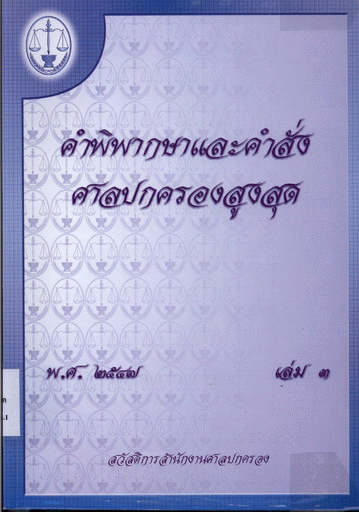 คำพิพากษาและคำสั่ง
ศาลปกครองสูงสุด
พ.ศ. ๒๕๔๗
เล่ม ๓
สวัสดิการสำนักงานศาลปกครอง